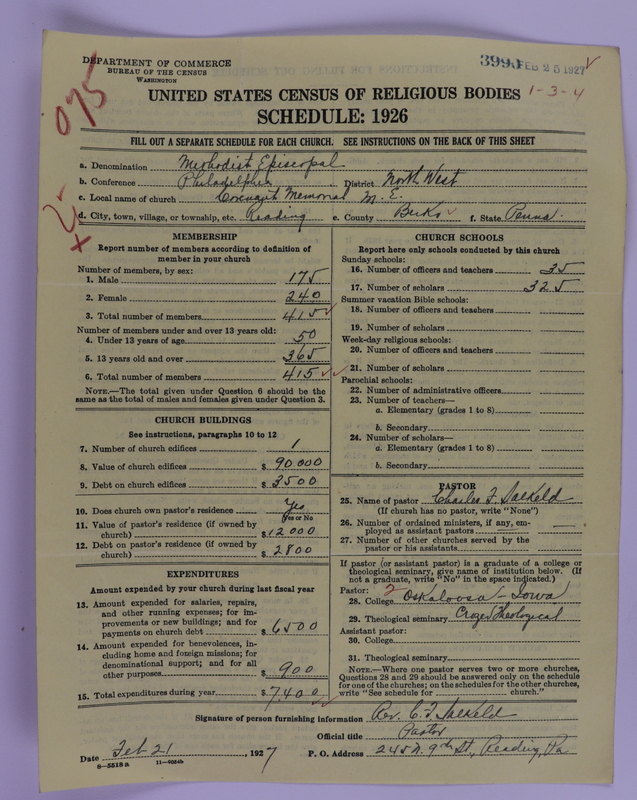 DEPARTMENT OF COMMERCE
BUREAU OF THE CENSUS
WASHINGTON
399 FEB 25 1927
075
UNITED STATES CENSUS OF RELIGIOUS BODIES
1-3-4
SCHEDULE: 1926
FILL OUT A SEPARATE SCHEDULE FOR EACH CHURCH. SEE INSTRUCTIONS ON THE BACK OF THIS SHEET
a. Denomination Methodist Episcopal
b. Conference Philadelphia District North West
c. Local name of church Covenant Memorial M. E.
d. City, town, village, or township, etc. Reading e. County Berks f. State Penna.
MEMBERSHIP
Report number of members according to definition of member in your church
Number of members, by sex:
1. Male 175
2. Female 240
3. Total number of members 415
Number of members under and over 13 years old:
4. Under 13 years of age 50
5. 13 years old and over 365
6. Total number of members 415
NOTE.—The total given under Question 6 should be the same as the total of males and females given under Question 3.
CHURCH BUILDINGS
See instructions, paragraphs 10 to 12
7. Number of church edifices 1
8. Value of church edifices $ 90000
9. Debt on church edifices $ 3500
10. Does church own pastor's residence Yes
Yes or No
11. Value of pastor's residence (if owned by church) $ 12000
12. Debt on pastor's residence (if owned by church) $ 2800
EXPENDITURES
Amount expended by your church during last fiscal year
13. Amount expended for salaries, repairs, and other running expenses; for improvements or new buildings; and for payments on church debt $ 6500
14. Amount expended for benevolences, including home and foreign missions; for denominational support; and for all other purposes $ 900
15. Total expenditures during year $ 7400
CHURCH SCHOOLS
Report here only schools conducted by this church
Sunday schools:
16. Number of officers and teachers 35
17. Number of scholars 325
Summer vacation Bible schools:
18. Number of officers and teachers
19. Number of scholars
Week-day religious schools:
20. Number of officers and teachers
21. Number of scholars
Parochial schools:
22. Number of administrative officers
23. Number of teachers—
a. Elementary (grades 1 to 8)
b. Secondary
24. Number of scholars—
a. Elementary (grades 1 to 8)
b. Secondary
PASTOR
25. Name of pastor Charles F. Salkeld
(If church has no pastor, write "None")
26. Number of ordained ministers, if any, employed as assistant pastors
27. Number of other churches served by the pastor or his assistants
If pastor (or assistant pastor) is a graduate of a college or theological seminary, give name of institution below. (If not a graduate, write "No" in the space indicated.)
Pastor:
28. College 2 Oskaloosa - Iowa
29. Theological seminary Crozer Theological
Assistant pastor:
30. College
31. Theological seminary
NOTE.—Where one pastor serves two or more churches, Questions 28 and 29 should be answered only on the schedule for one of the churches; on the schedules for the other churches, write "See schedule for church."
Signature of person furnishing information Rev. C. F. Salkeld
Official title Pastor
Date Feb 21, 1927 P. O. Address 245 N. 9th St., Reading, Pa
8-5518a 11-9054b